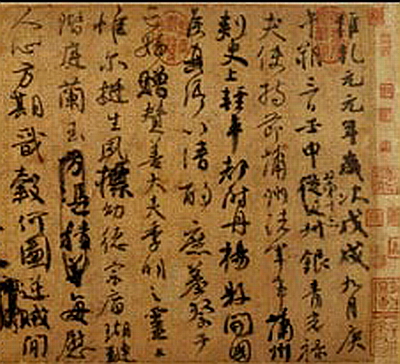 維乾元元年歲次戊戌九月庚
午朔三日壬申第十三從父叔銀青光祿
夫使持節蒲州諸軍事蒲州
刺史上輕車都尉丹楊縣開國
侯真卿以清酌庶羞祭于
亡姪贈贊善大夫季明之靈曰
惟爾挺生夙標幼德宗廟瑚璉
階庭蘭玉方憑積善每慰
人心方期戩穀何圖逆賊閒